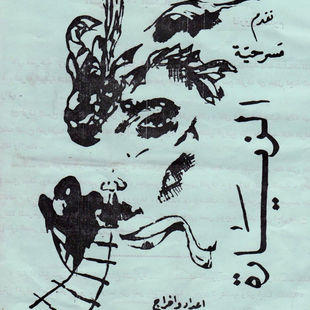 تقدم
مسرحيّة
الزيَارة
اعداد واخراج